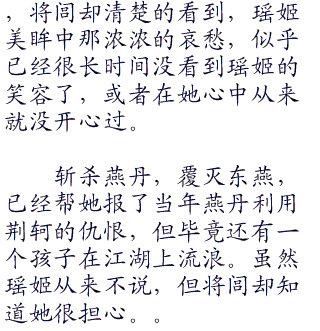 ，将闾却清楚的看到，瑶姬
美眸中那浓浓的哀愁，似乎
已经很长时间没看到瑶姬的
笑容了，或者在她心中从来
就没开心过。
斩杀燕丹，覆灭东燕，
已经帮她报了当年燕丹利用
荆轲的仇恨，但毕竟还有一
个孩子在江湖上流浪。虽然
瑶姬从来不说，但将闾却知
道她很担心。。